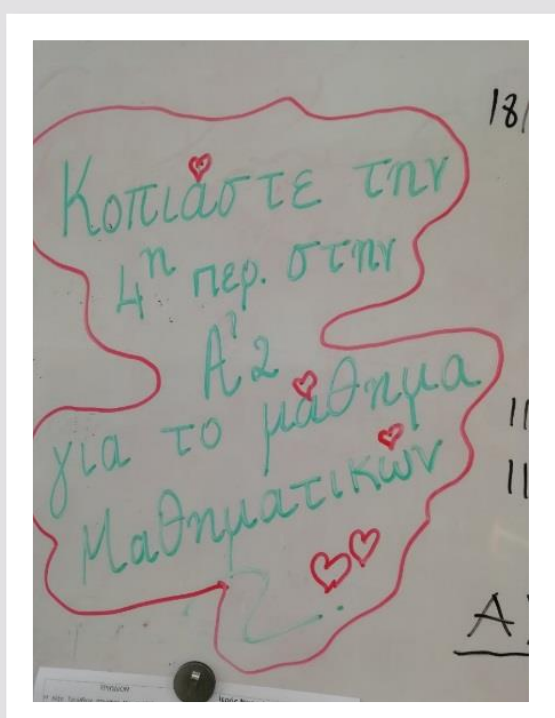 Κοπιάστε την
4η περ. στην
Α'2
για το μάθημα
Μαθηματικών
18/
11
11
Α